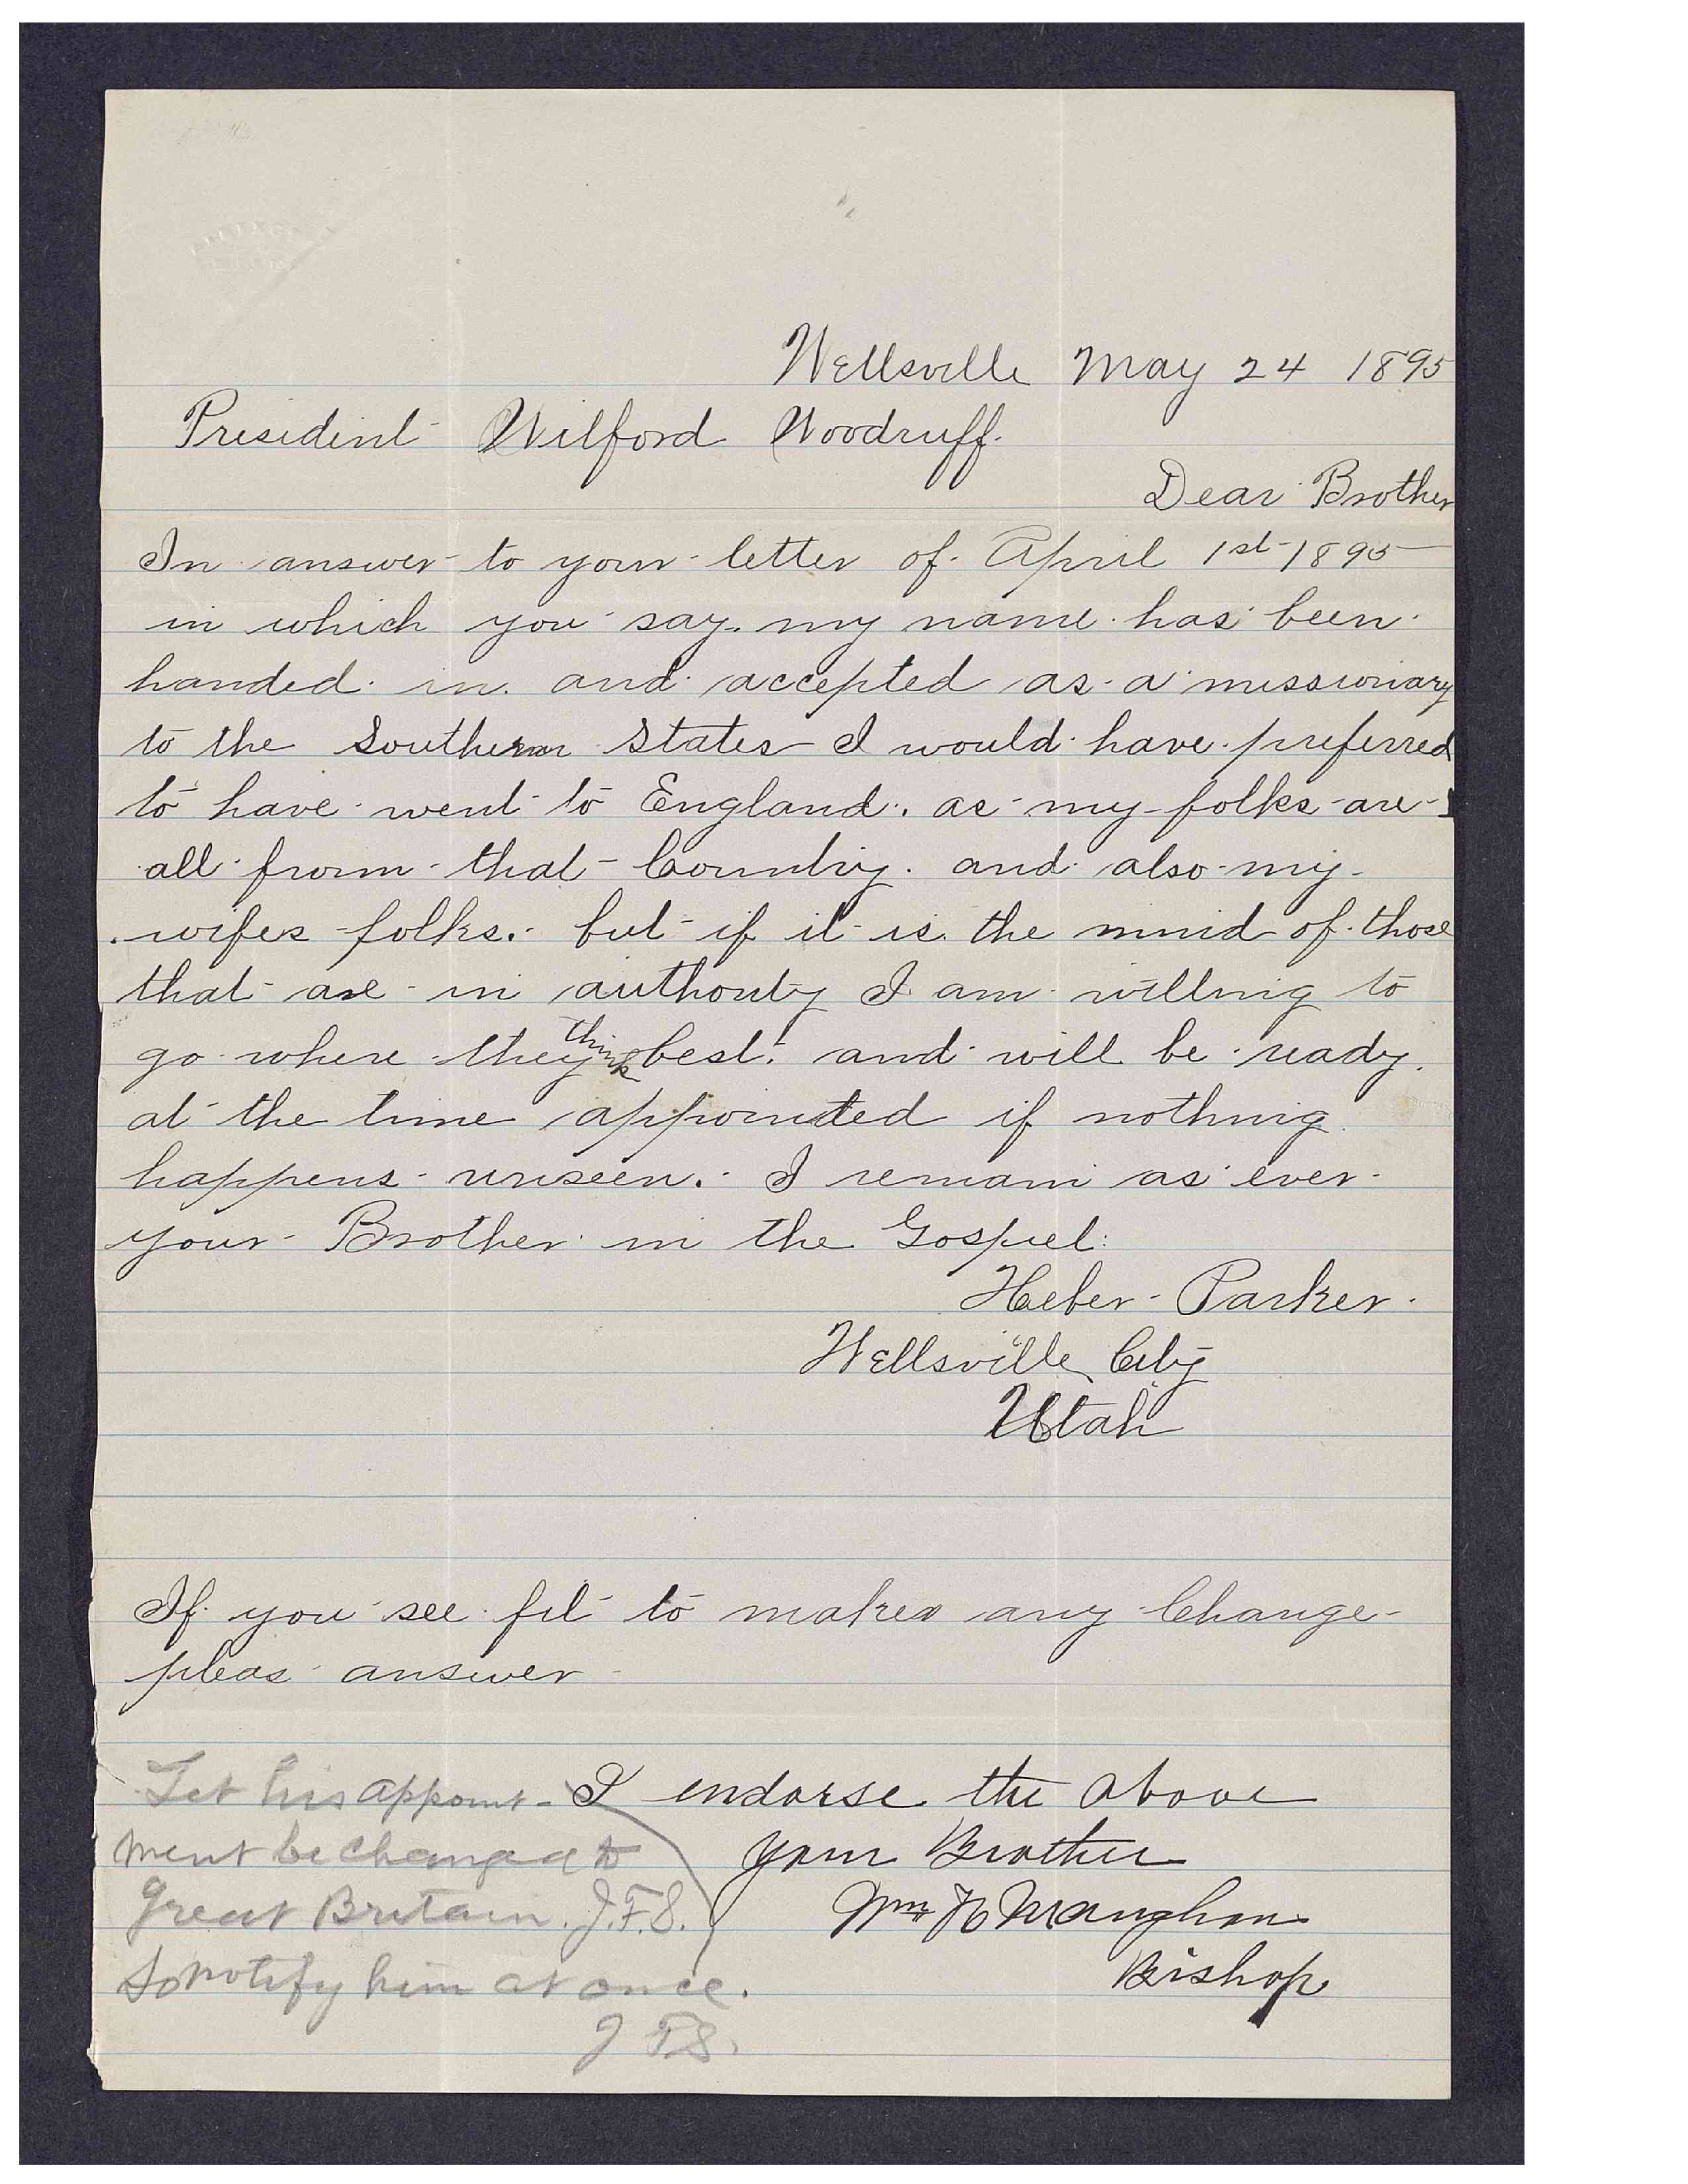 Wellsville May 24 1895
President Wilford Woodruff.
Dear Brother
In answer to your letter of April 1st 1895
in which you say my name has been
handed in and accepted as a missionary
to the Southern States I would have preferred
to have went to England. as my folks are
all from that Country. and also my
wifes folks. but if it is the mind of those
that are in authority I am willing to
go where they think best. and will be ready.
at the time appointed if nothing
happens unseen. I remain as ever
your Brother in the Gospel.
Heber Parker.
Wellsville City
Utah
If you see fit to make any Change
pleas answer
I endorse the above
your Brother
Wm H Maughan
Bishop
Let his appoint-
ment be changed to
Great Britain. J.F.S.
So notify him at once.
J F S.